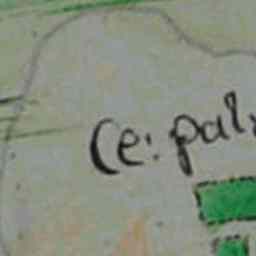 Ce: pal: